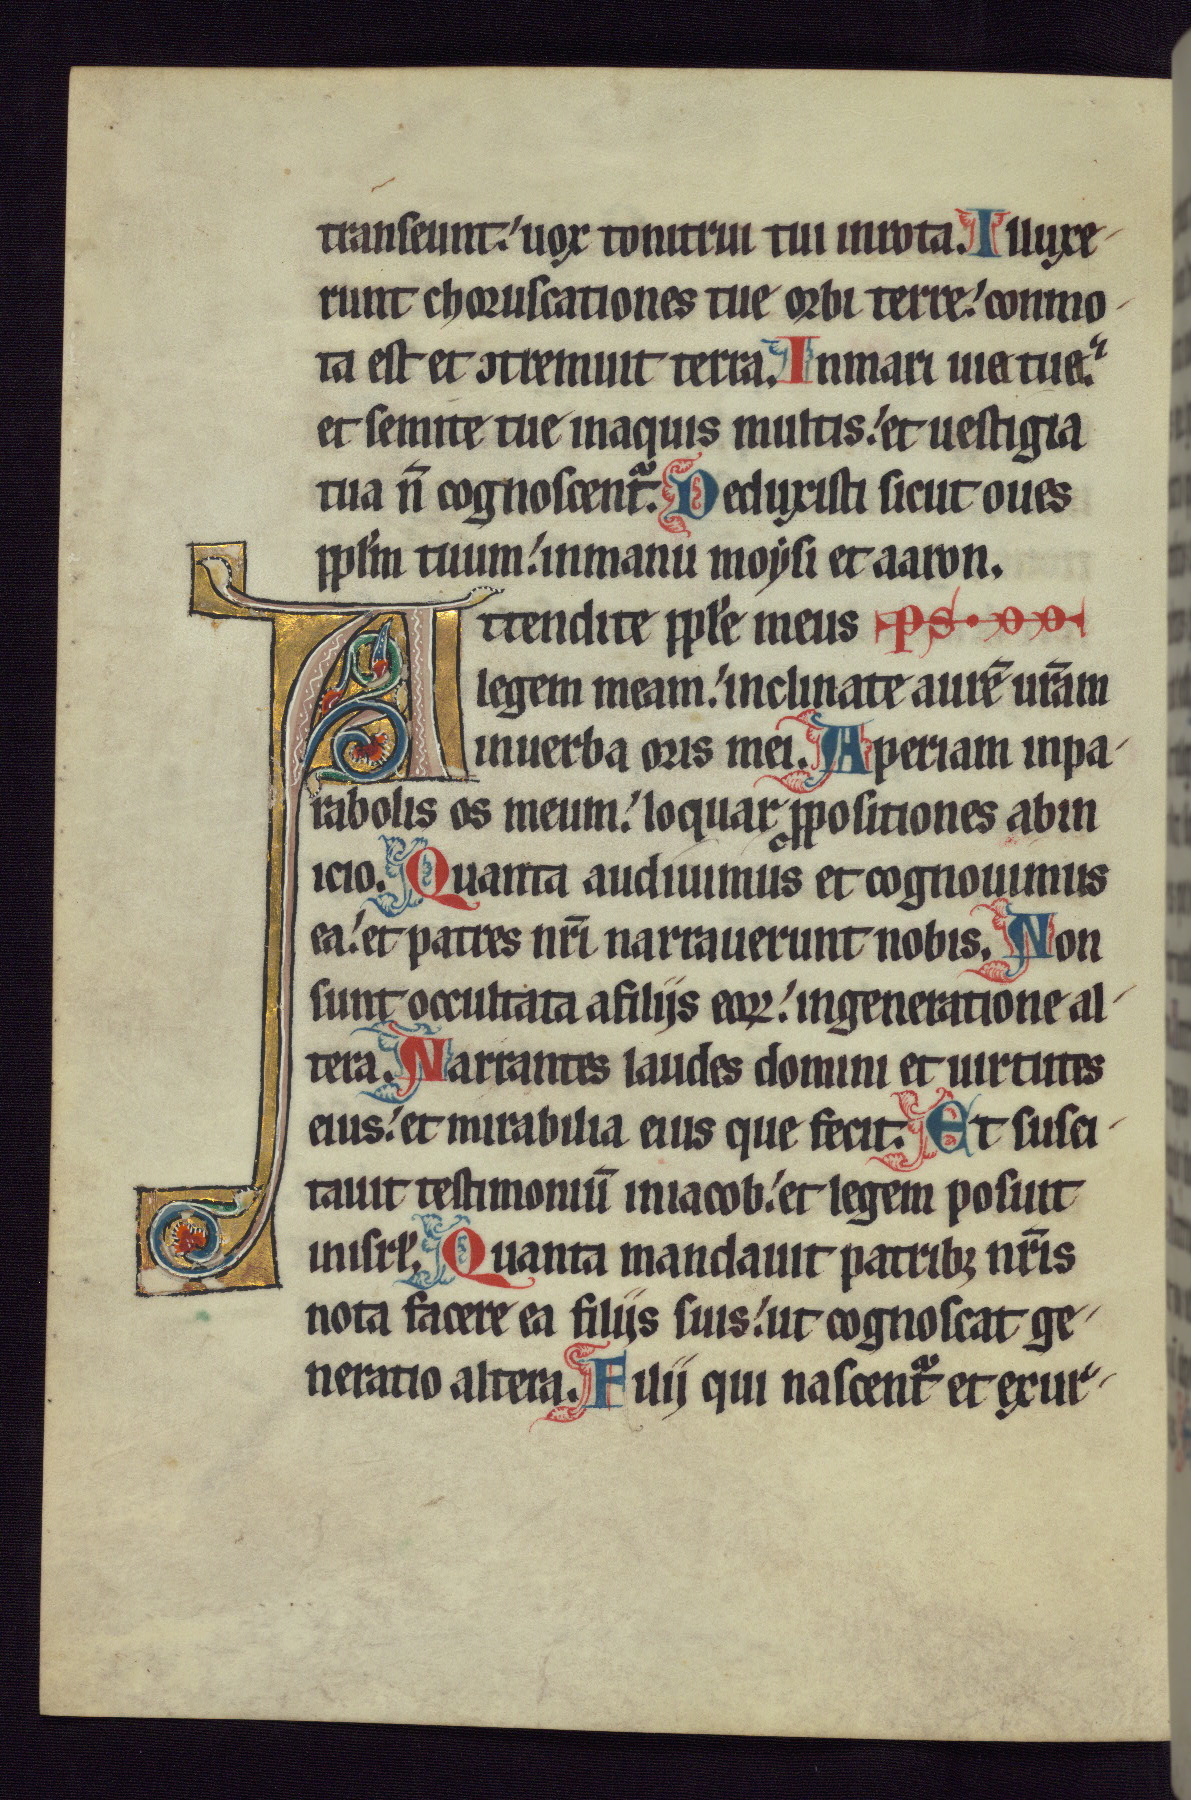 transeunt: uox tonitrui tui inrota. Illuxe-
runt choruscationes tue orbi terre: conmo-
ta est et ↄtremuit terra. Inmari uia tua:
et semite tue inaquis multis: et uestigia
tua n̄ cognoscent᷒. Deduxisti sicut oues
ppl̄m tuum: inmanu moysi et aaron.
Attendite ppl̄e meus ps.
legem meam: inclinate aurē ur̄am
inuerba oris mei. Aperiam inpa-
rabolis os meum: loquar ꝓpositiones abin
icio. Quanta audiuimus et cognouimus
ea: et patres nr̄i narrauerunt nobis. Non
sunt occultata afilijs eoꝝ: ingeneratione al-
tera. Narrantes laudes domini et uirtutes
eius: et mirabilia eius que fecit. Et susci-
tauit testimoniū iniacob: et legem posuit
inisrl̄. Quanta mandauit patribꝫ nr̄is
nota facere ea filijs suis: ut cognoscat ge-
neratio altera. Filij qui nascent᷒ et exur-